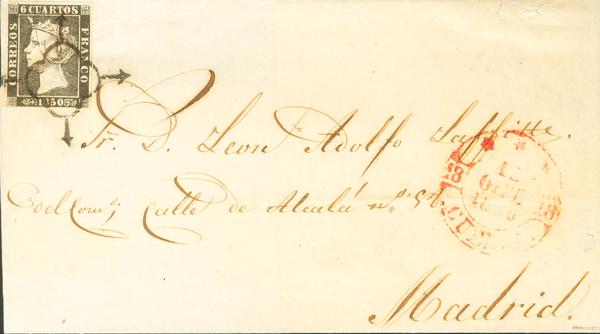 6 CUARTOS
CORREOS
FRANCO
1850
Sr. D. Leon Adolfo Laffitte.
Calle de Alcalá nº
Madrid.
18 18
1850